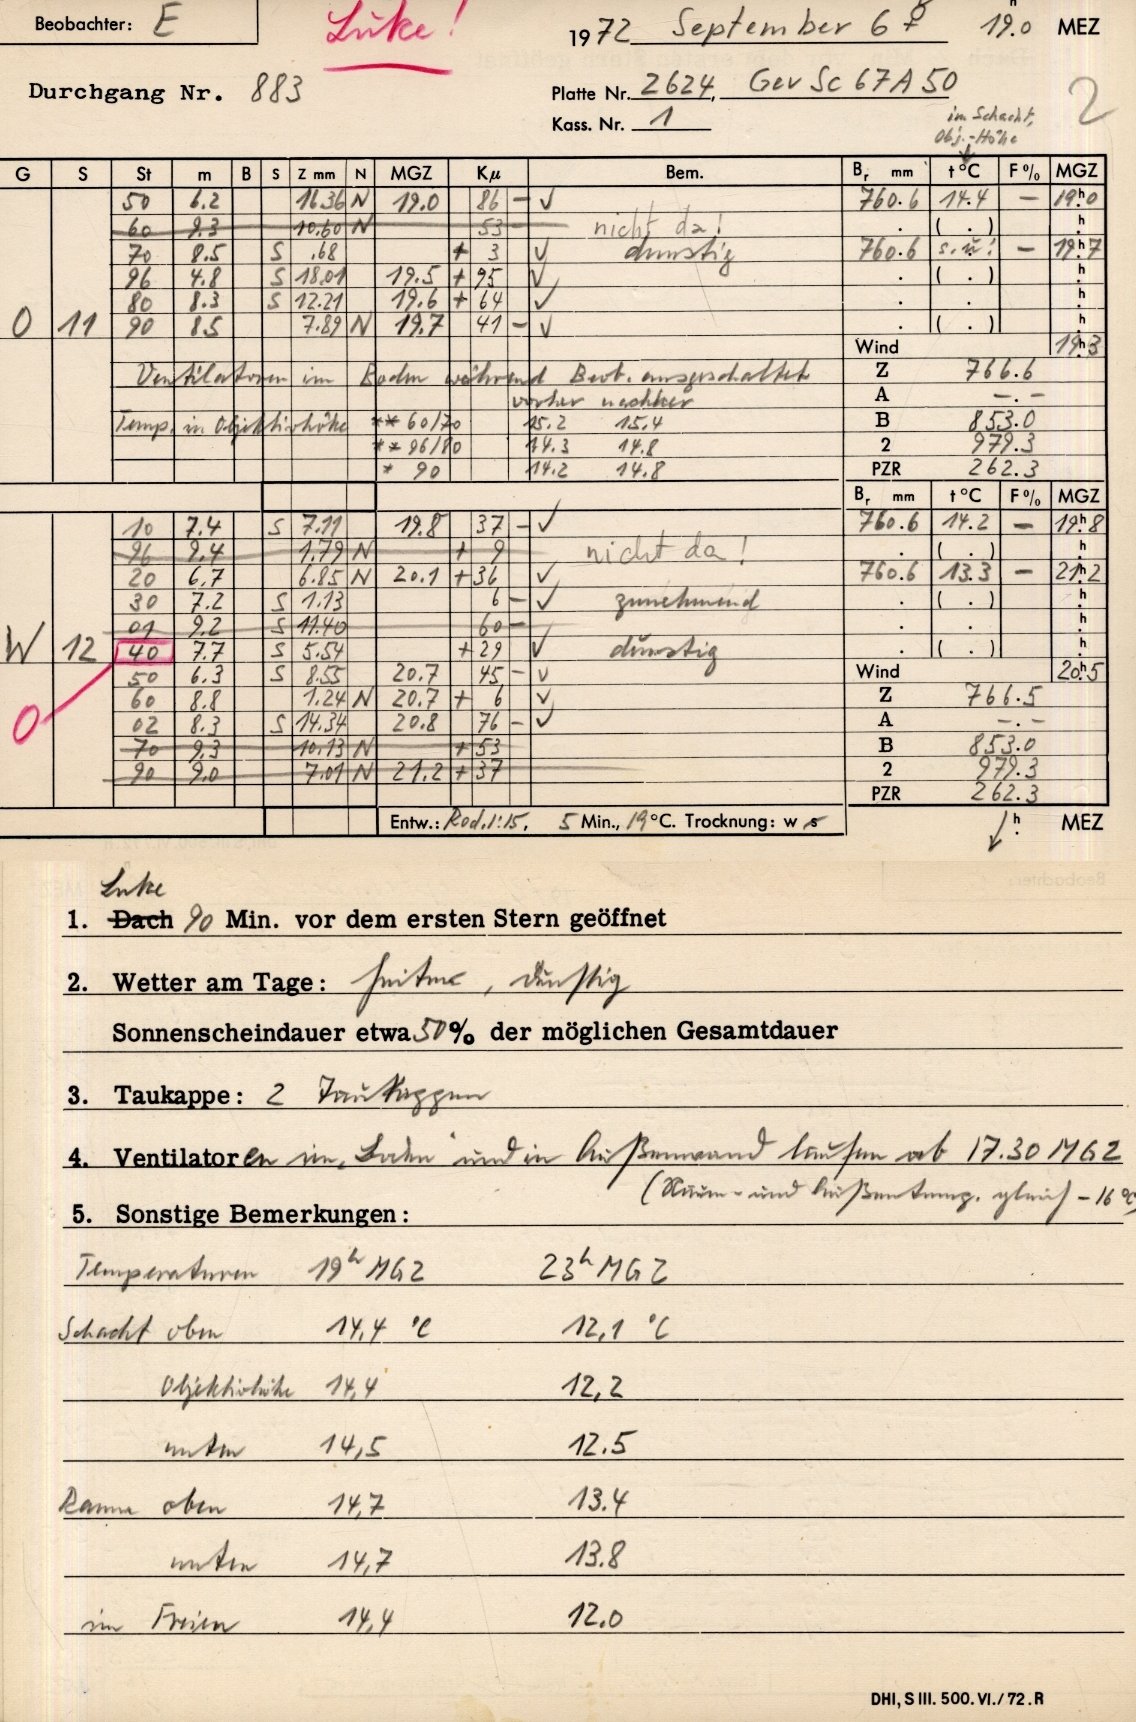 Beobachter: E Luke! 1972 September 6 ☿ 19.0 h MEZ
Durchgang Nr. 883 Platte Nr. 2624, Gev Sc 67 A 50 2
Kass. Nr. 1 im Schacht,
Obj.-Höhe
G S St m B S Z mm N MGZ Kµ Bem. Br mm t °C F % MGZ
50 6.2 16.36 N 19.0 86 - ✓ 760.6 14.4 - 19h0
60 9.3 10.60 N 53 nicht da! . ( . ) h
70 8.5 S .68 + 3 ✓ dunstig 760.6 s.u.! - 19h7
96 4.8 S 18.01 19.5 + 95 ✓ . ( . ) h
80 8.3 S 12.21 19.6 + 64 ✓ . . h
O 11 90 8.5 7.89 N 19.7 41 - ✓ . ( . ) h
Wind 19h3
Ventilatoren im Boden während Beob. ausgeschaltet Z 766.6
vorher nachher A -.-
Temp. in Objektivhöhe ** 60/70 15.2 15.4 B 853.0
** 96/80 14.3 14.8 2 979.3
* 90 14.2 14.8 PZR 262.3
Br mm t °C F % MGZ
10 7.4 S 7.11 19.8 37 - ✓ 760.6 14.2 - 19h8
96 9.4 1.79 N + 9 nicht da! . ( . ) h
20 6.7 6.85 N 20.1 + 36 ✓ 760.6 13.3 - 21h2
30 7.2 S 1.13 6 - ✓ zunehmend . ( . ) h
01 9.2 S 11.40 60 - . . h
W 12 40 7.7 S 5.54 + 29 ✓ dunstig . ( . ) h
50 6.3 S 8.55 20.7 45 - ✓ Wind 20h5
60 8.8 1.24 N 20.7 + 6 ✓ Z 766.5
O 02 8.3 S 14.34 20.8 76 - ✓ A -.-
70 9.3 10.13 N + 53 B 853.0
90 9.0 7.01 N 21.2 + 37 2 979.3
PZR 262.3
Entw.: Rod.1:15, 5 Min., 19 °C. Trocknung: w s h . MEZ
Luke
1. Dach 90 Min. vor dem ersten Stern geöffnet
2. Wetter am Tage: heiter, dunstig
Sonnenscheindauer etwa 50 % der möglichen Gesamtdauer
3. Taukappe: 2 Taukappen
4. Ventilatoren im „Boden“ und in Außenwand laufen ab 17.30 MGZ
(Raum- und Außentemp. gleich - 16 °C)
5. Sonstige Bemerkungen:
Temperaturen 19h MGZ 23h MGZ
Schacht oben 14,4 °C 12,1 °C
Objektivhöhe 14,4 12,2
unten 14,5 12.5
Raum oben 14,7 13.4
unten 14,7 13.8
im Freien 14,4 12.0
DHI, S III. 500. VI./72. R